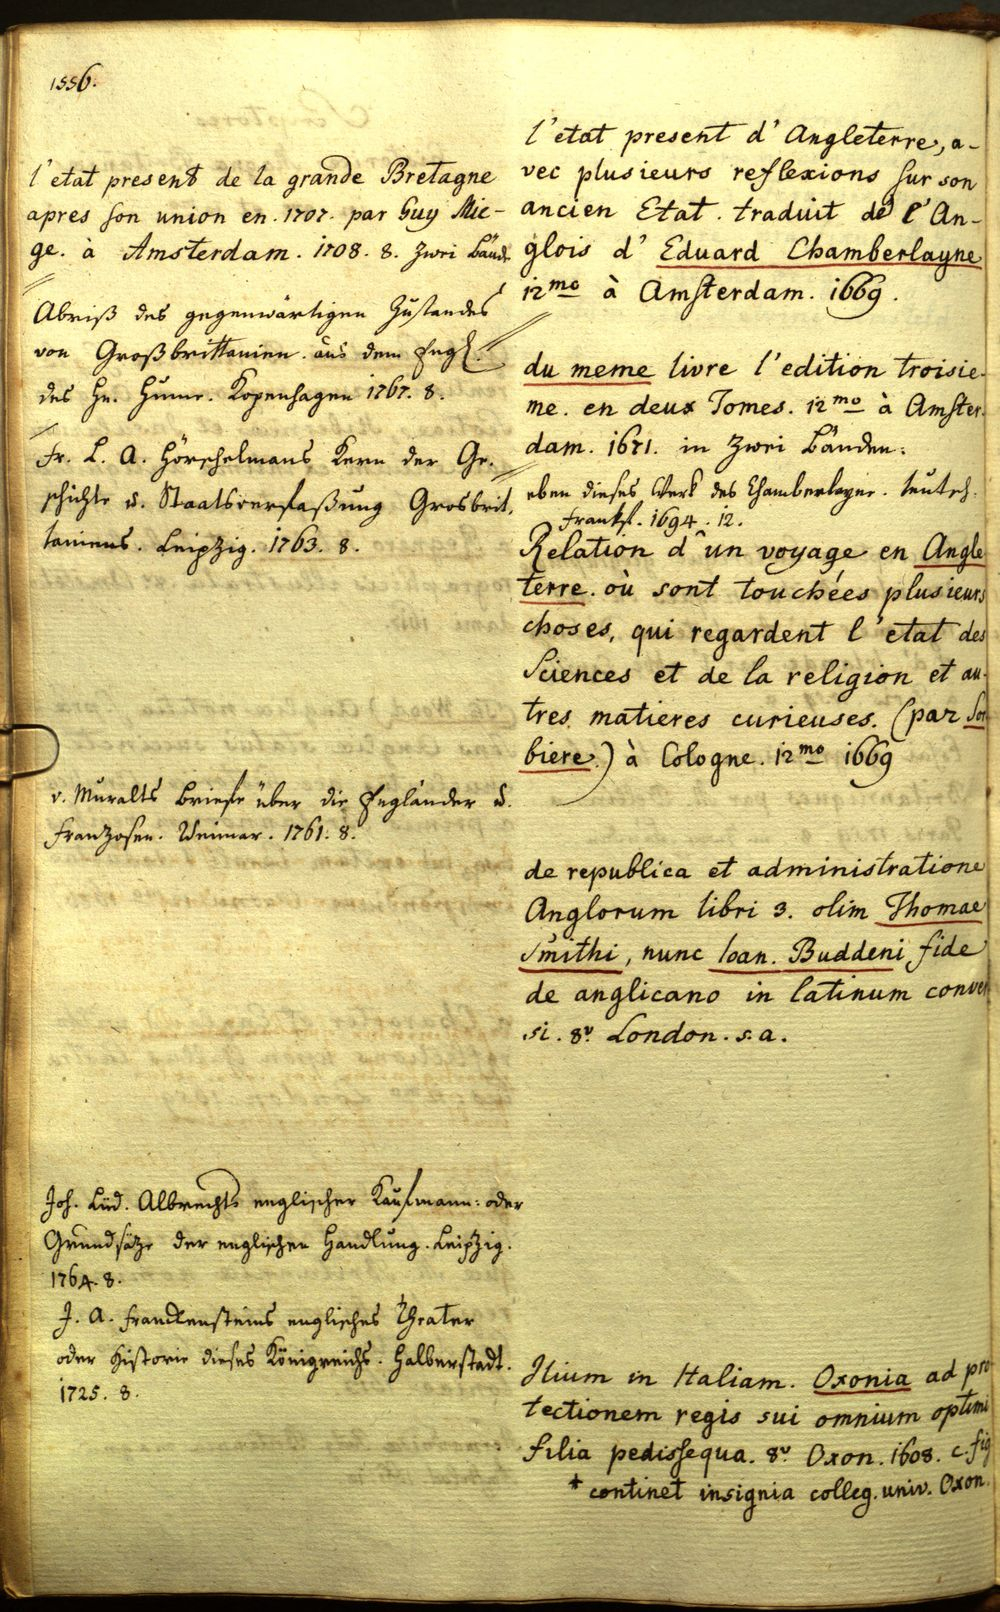 1556.
l'etat present de la grande Bretagne
apres son union en. 1707. par Guy Mie-
ge. à Amsterdam. 1708. 8. zwei Bände
Abriß des gegenwärtigen Zustandes
von Großbrittanien. aus dem Engl.
des Hn. Hume. Kopenhagen 1767. 8.
Fr. L. A. Hörschelmans Kern der Ge-
schichte u. Staatsverfaßung Grosbrit,
taniens. Leipzig. 1763. 8.
v. Muralts Briefe über die Engländer u.
Franzosen. Weimar. 1761. 8.
Joh. Lud. Albrechts englischer Kaufmann: oder
Grundsätze der englischen Handlung. Leipzig.
1764. 8.
J. A. Franckensteins englisches Theater
oder Historie dieses Königreichs. Halberstadt.
1725. 8.
l'etat present d'Angleterre, a-
vec plusieurs reflexions sur son
ancien Etat. traduit de l'An-
glois d'Eduard Chamberlayne
12mo à Amsterdam. 1669.
du meme livre l'edition troisie-
me. en deux Tomes. 12mo à Amster-
dam. 1671. in zwei Bänden.
eben dieses Werk des Chamberlayne. teutsch.
Frankf. 1694. 12.
Relation d'un voyage en Angle
terre. où sont touchées plusieurs
choses, qui regardent l'etat des
Sciences et de la religion et au-
tres matieres curieuses. (par Sor
biere.) à Cologne. 12mo 1669
de republica et administratione
Anglorum libri 3. olim Thomae
Smithi, nunc Ioan. Buddeni fide
de anglicano in latinum conver
si. 8v. London. s. a.
Ilium in Italiam. Oxonia ad pro
tectionem regis sui omnium optimi
filia pedissequa. 8v. Oxon. 1608. c. fig
+ continet insignia colleg. univ. Oxon.